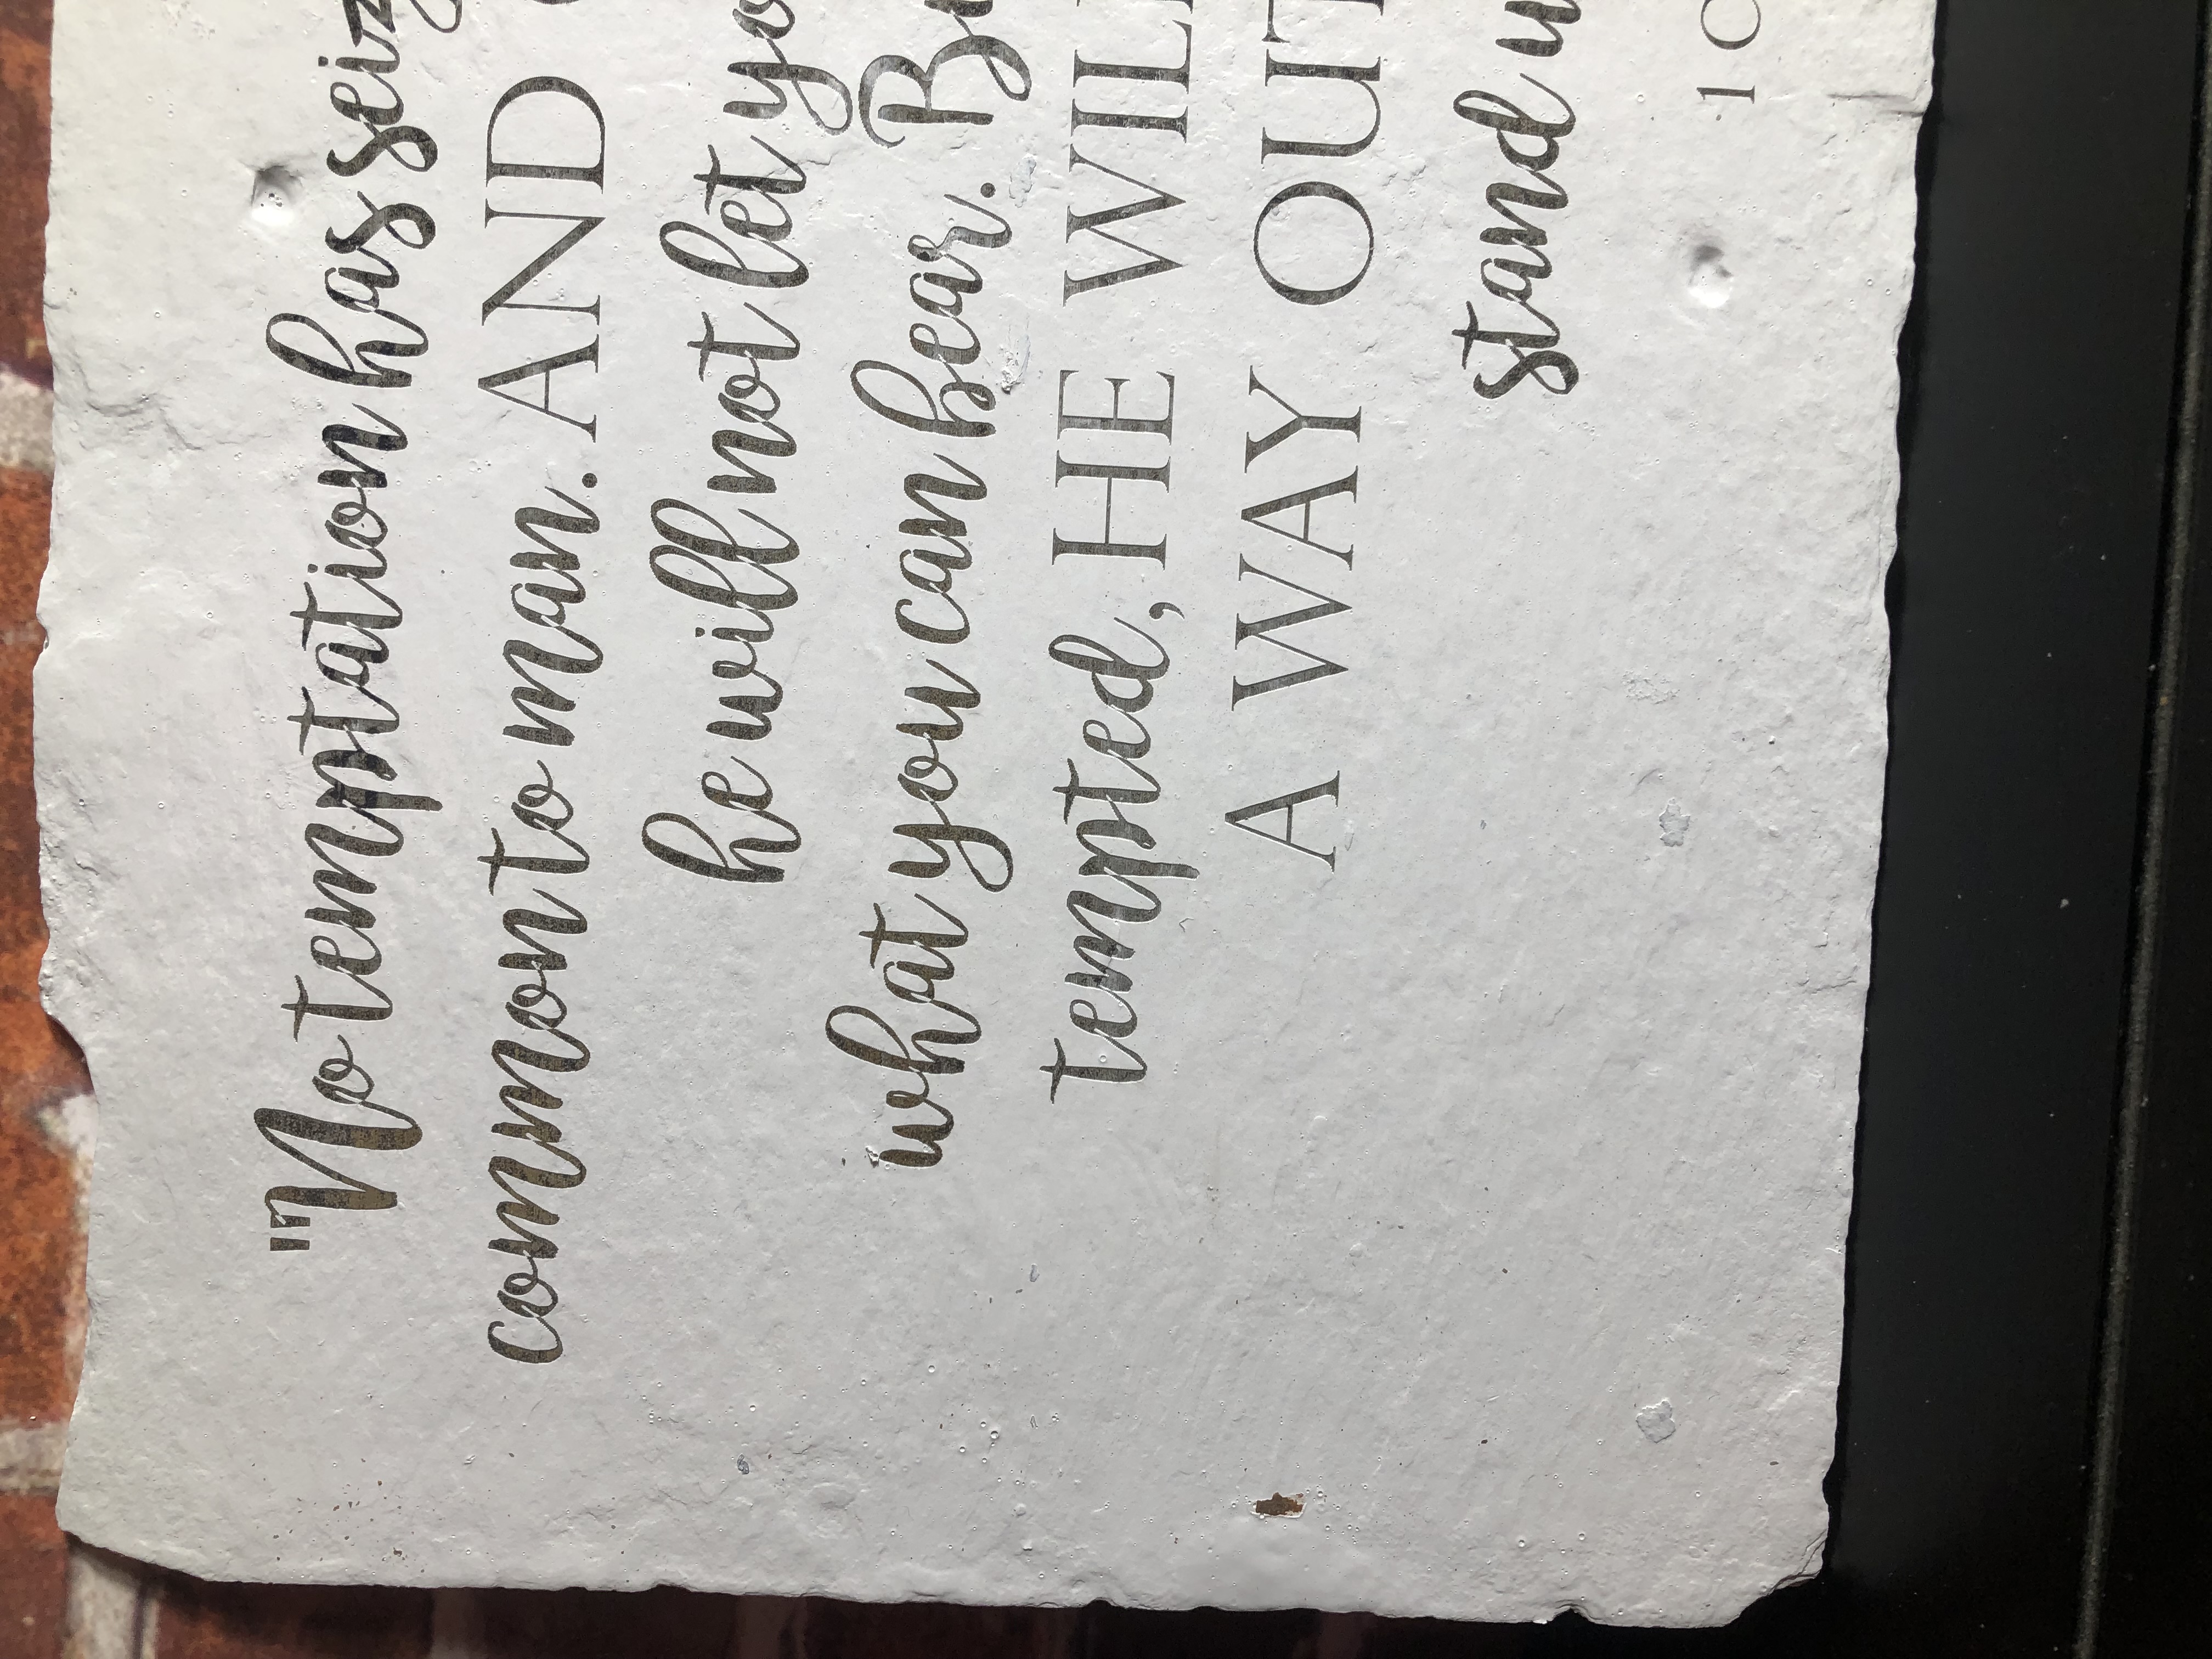 "No temptation has seiz
common to man. AND
he will not let yo
what you can bear. Bu
tempted, HE WILL
A WAY OUT
stand u
1 C